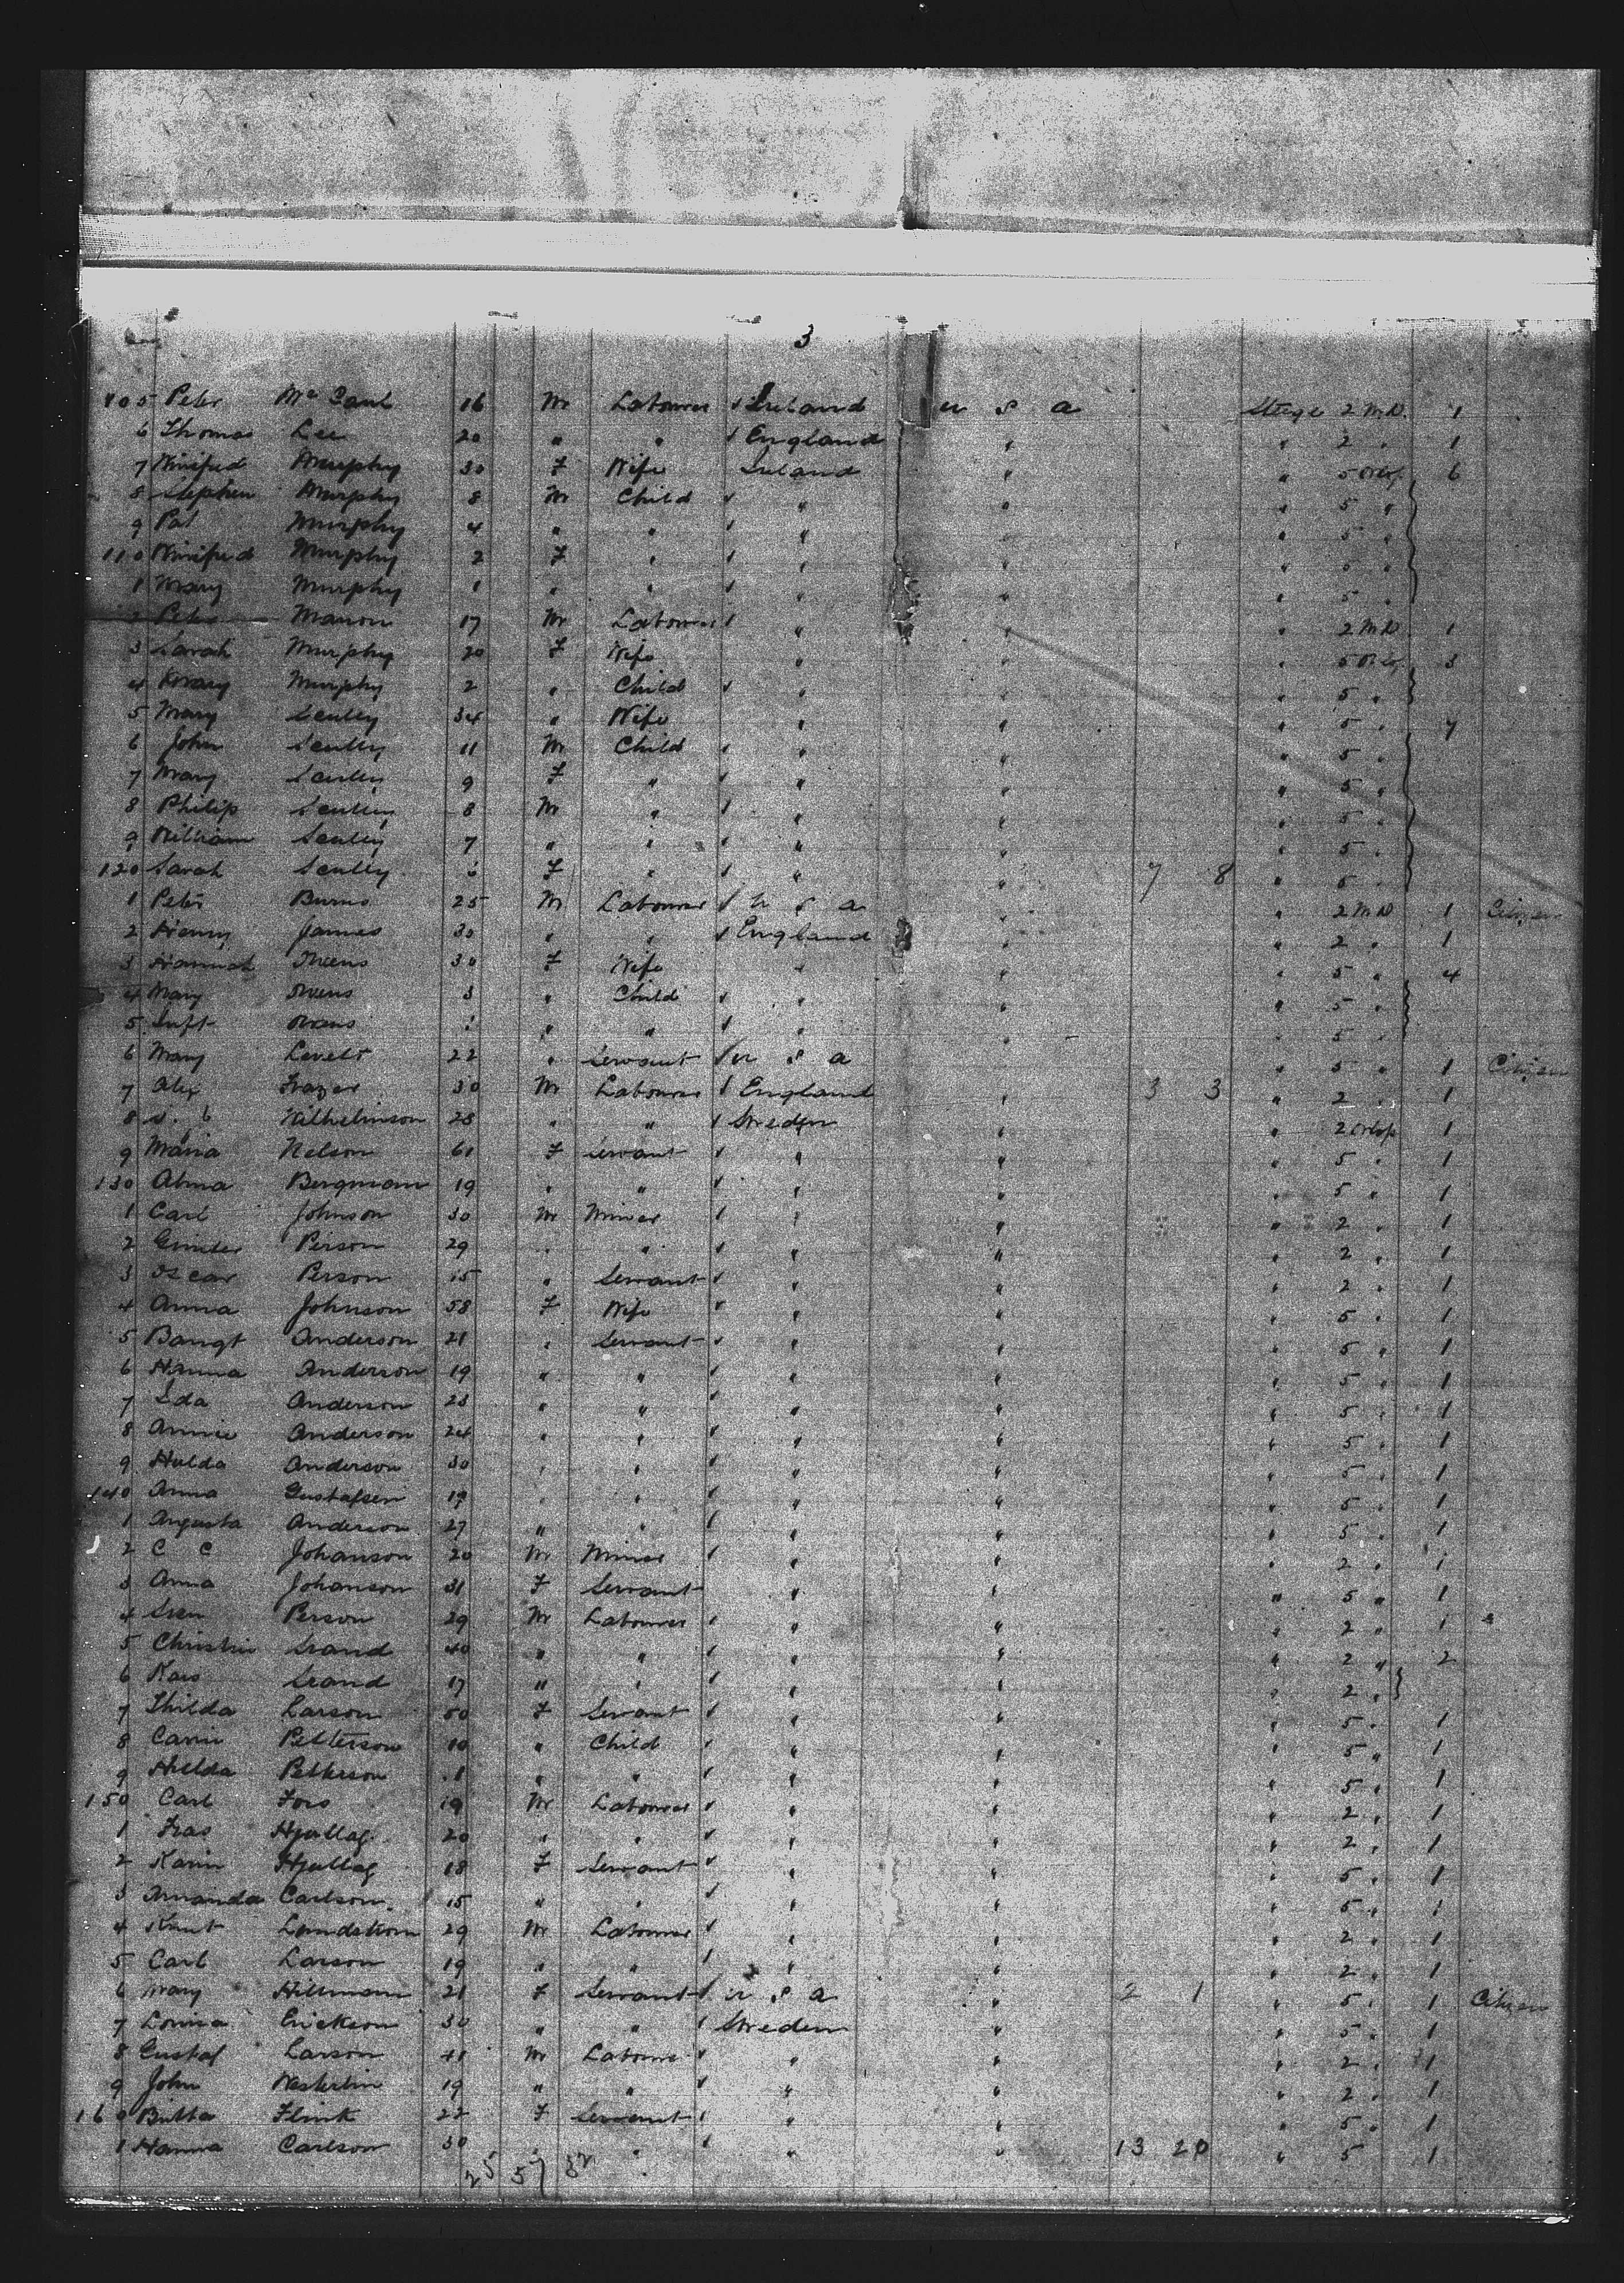 3
105 Peter Mc Caul 16 M Labourer Ireland U S A Steege 2 M.D. 1
6 Thomas Lee 20 " " England " " 2 " 1
7 Winifred Murphy 30 F Wife Ireland " " 5 6
8 Stephen Murphy 8 M Child " " " 5 "
9 Pat Murphy 4 " " " " " 5 "
110 Winifred Murphy 2 F " " " " " "
1 Mary Murphy 1 " " " " " 5 "
2 Peter Marron 17 M Labourer " " " 2 M.D 1
3 Sarah Murphy 20 F Wife " " " 5 3
4 Mary Murphy 2 " Child " " " 5 "
5 Mary Scully 34 " Wife " " " 5 " 7
6 John Scully 11 M Child " " " 5 "
7 Mary Scully 9 F " " " " 5 "
8 Philip Scully 8 M " " " " 5 "
9 William Scully 7 " " " " " 5 "
120 Sarah Scully F " " " 7 8 " 5 "
1 Peter Burns 25 M Labourer U S A " " 2 M D 1 Citizen
2 Henry James 30 " " England " " 2 " 1
3 Hannah Owens 30 F Wife " " " 5 " 4
4 Mary Owens 3 " Child " " " 5 "
5 Inft Owens " " " " 5 "
6 Mary 22 " Servant U S A " 5 " 1 Citizen
7 Alex Frazer 30 M Labourer England " 3 3 " 2 " 1
8 Wilhelmson 28 " " Sweden " " 2 1
9 Maria Nelson 61 F Servant " " " 5 " 1
130 Alma Bergman 19 " " " " " 5 " 1
1 Carl Johnson 30 M Miner " " " 2 " 1
2 Person 29 " " " " " 2 " 1
3 Oscar Person 15 " Servant " " " 2 " 1
4 Anna Johnson 58 F Wife " " " 5 " 1
5 Bangt Anderson 21 " Servant " " " 5 " 1
6 Hanna Anderson 19 " " " " " 5 " 1
7 Ida Anderson 23 " " " " " 5 " 1
8 Annie Anderson 24 " " " " " 5 " 1
9 Hulda Anderson 30 " " " " " 5 " 1
140 Anna Gustafsen 19 " " " " " 5 " 1
1 Augusta Anderson 27 " " " " " 5 " 1
2 C C Johanson 20 M Miner " " " 2 " 1
3 Anna Johanson 31 F Servant " " " 5 " 1
4 Sven Person 29 M Labourer " " " 2 " 1
5 Christin 40 " " " " " 2 " 2
6 17 " " " " " 2 "
7 Thilda Larson 50 F Servant " " " 5 " 1
8 Carin Petterson 10 " Child " " " 5 " 1
9 Hilda Petterson 11 " " " " " 5 " 1
150 Carl Fors 19 M Labourer " " " 2 " 1
1 20 " " " " " 2 " 1
2 Karin 18 F Servant " " " 5 " 1
3 Amanda Carlson 15 " " " " " 5 " 1
4 Knut Lundstrom 29 M Labourer " " " 2 " 1
5 Carl Larson 19 " " " " " 2 " 1
6 Mary Hillman 21 F Servant U S A " 2 1 " 5 " 1 Citizen
7 Lovisa Erickson 30 " " Sweden " " 5 " 1
8 Gustaf Larson 41 M Labourer " " " 2 " 1
9 John Westerlin 19 " " " " " 2 " 1
160 Britta Flink 22 F Servant " " " 5 " 1
1 Hanna Carlson 30 " " " " 13 20 " 5 1
25 57 82